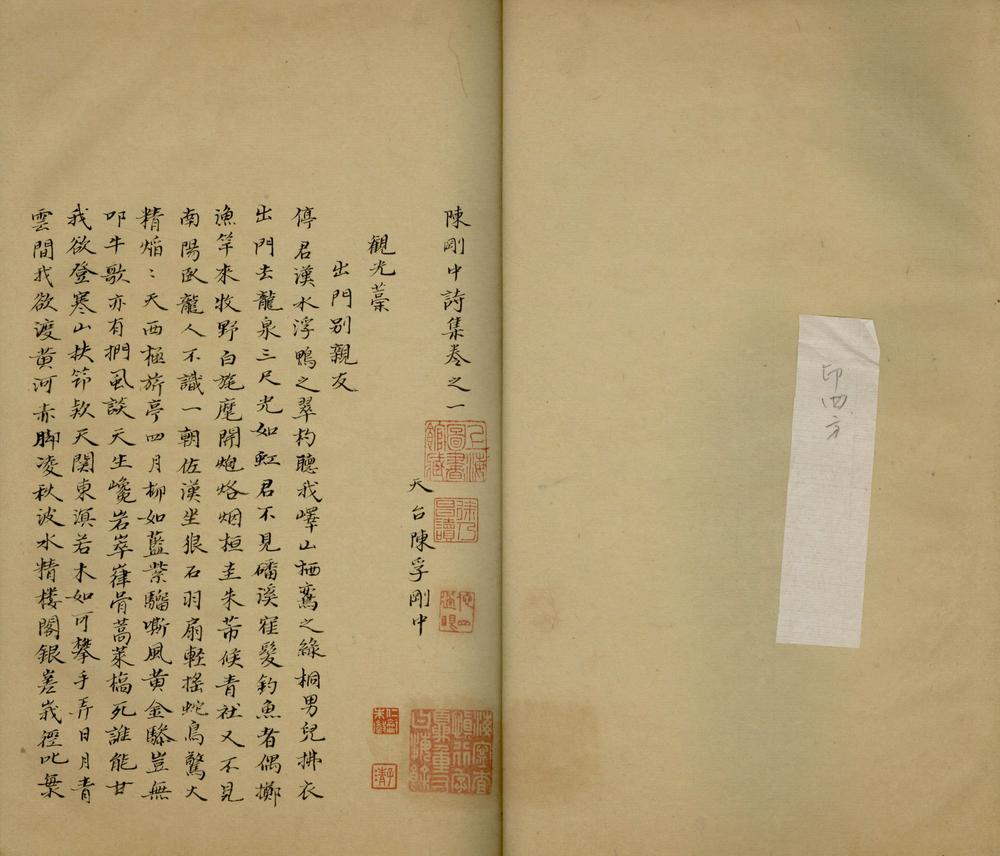 印四方
陳剛中詩集卷之一
天台陳孚剛中
觀光藁
出門別親友
停君漢水浮鴨之翠杓聽我嶧山栖鸞之綠桐男兒拂衣
出門去龍泉三尺光如虹君不見磻溪寉髮釣魚者偶擲
漁竿來牧野白旄麾開炮烙烟桓圭朱芾候青社又不見
南陽臥龍人不識一朝佐漢坐狠石羽扇輕搖蛇鳥驚大
精熖：天西極旂亭四月柳如藍紫騮嘶風黄金驂豈無
叩牛歌亦有捫風談天生巉岩崒嵂骨蒿萊槁死誰能甘
我欲登寒山扶笻欵天関東溟若木如可攀手弄日月青
雲間我欲渡黄河赤脚凌秋波水精樓閣銀嵳峩徑叱
上海圖書館藏